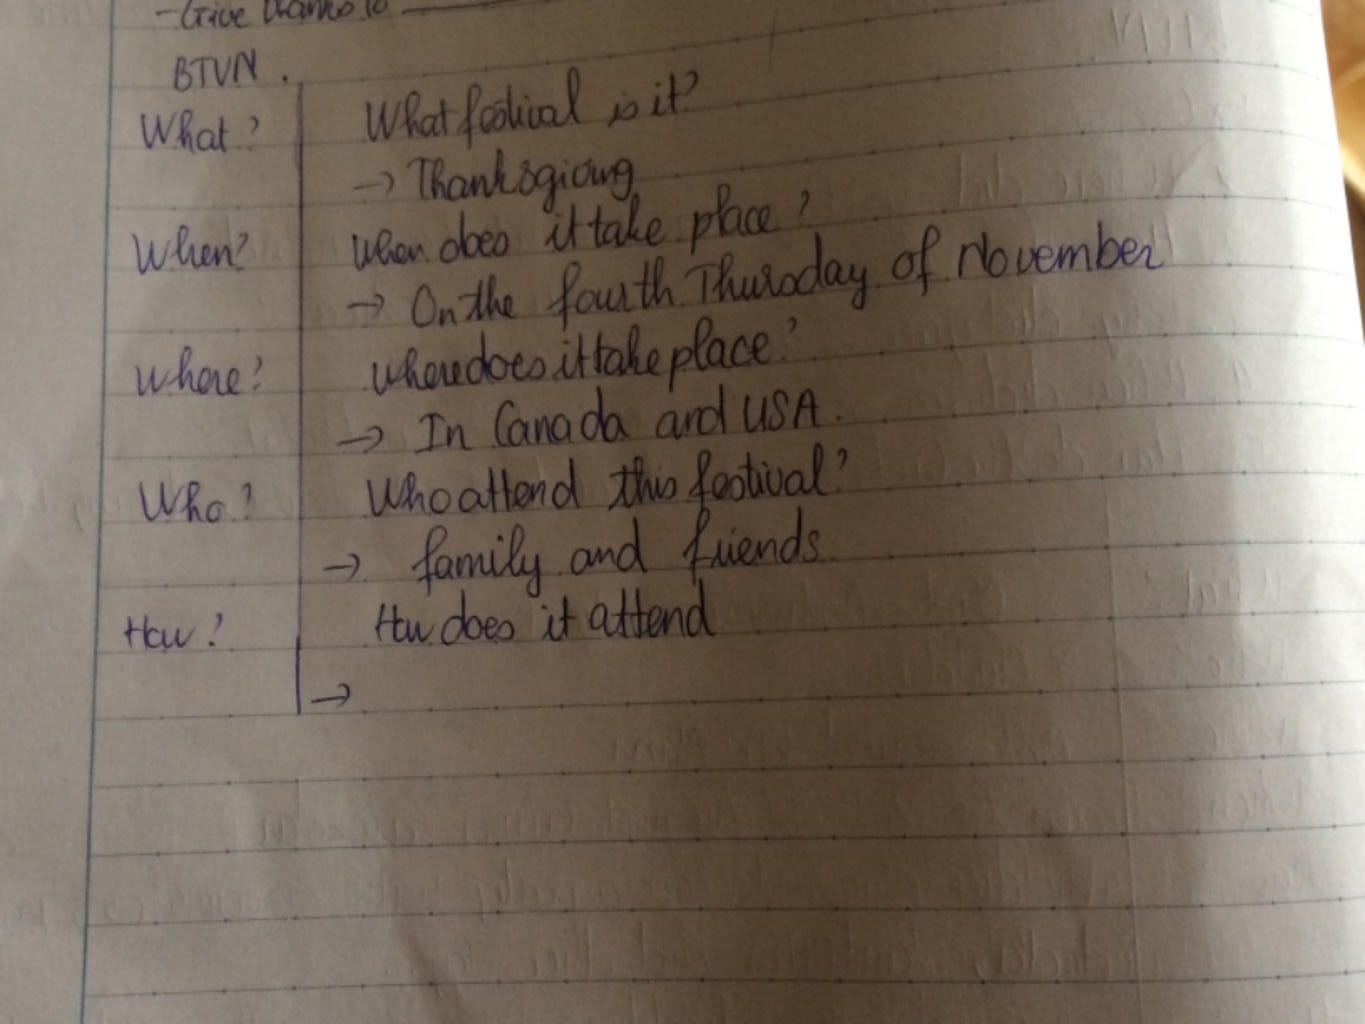 - Give thanks to
BTVN.
What? What festival is it?
→ Thanksgiving
When? When does it take place?
→ On the fourth Thursday of November
Where? Where does it take place?
→ In Canada and USA.
Who? Who attend this festival?
→ family and friends
How? How does it attend
→